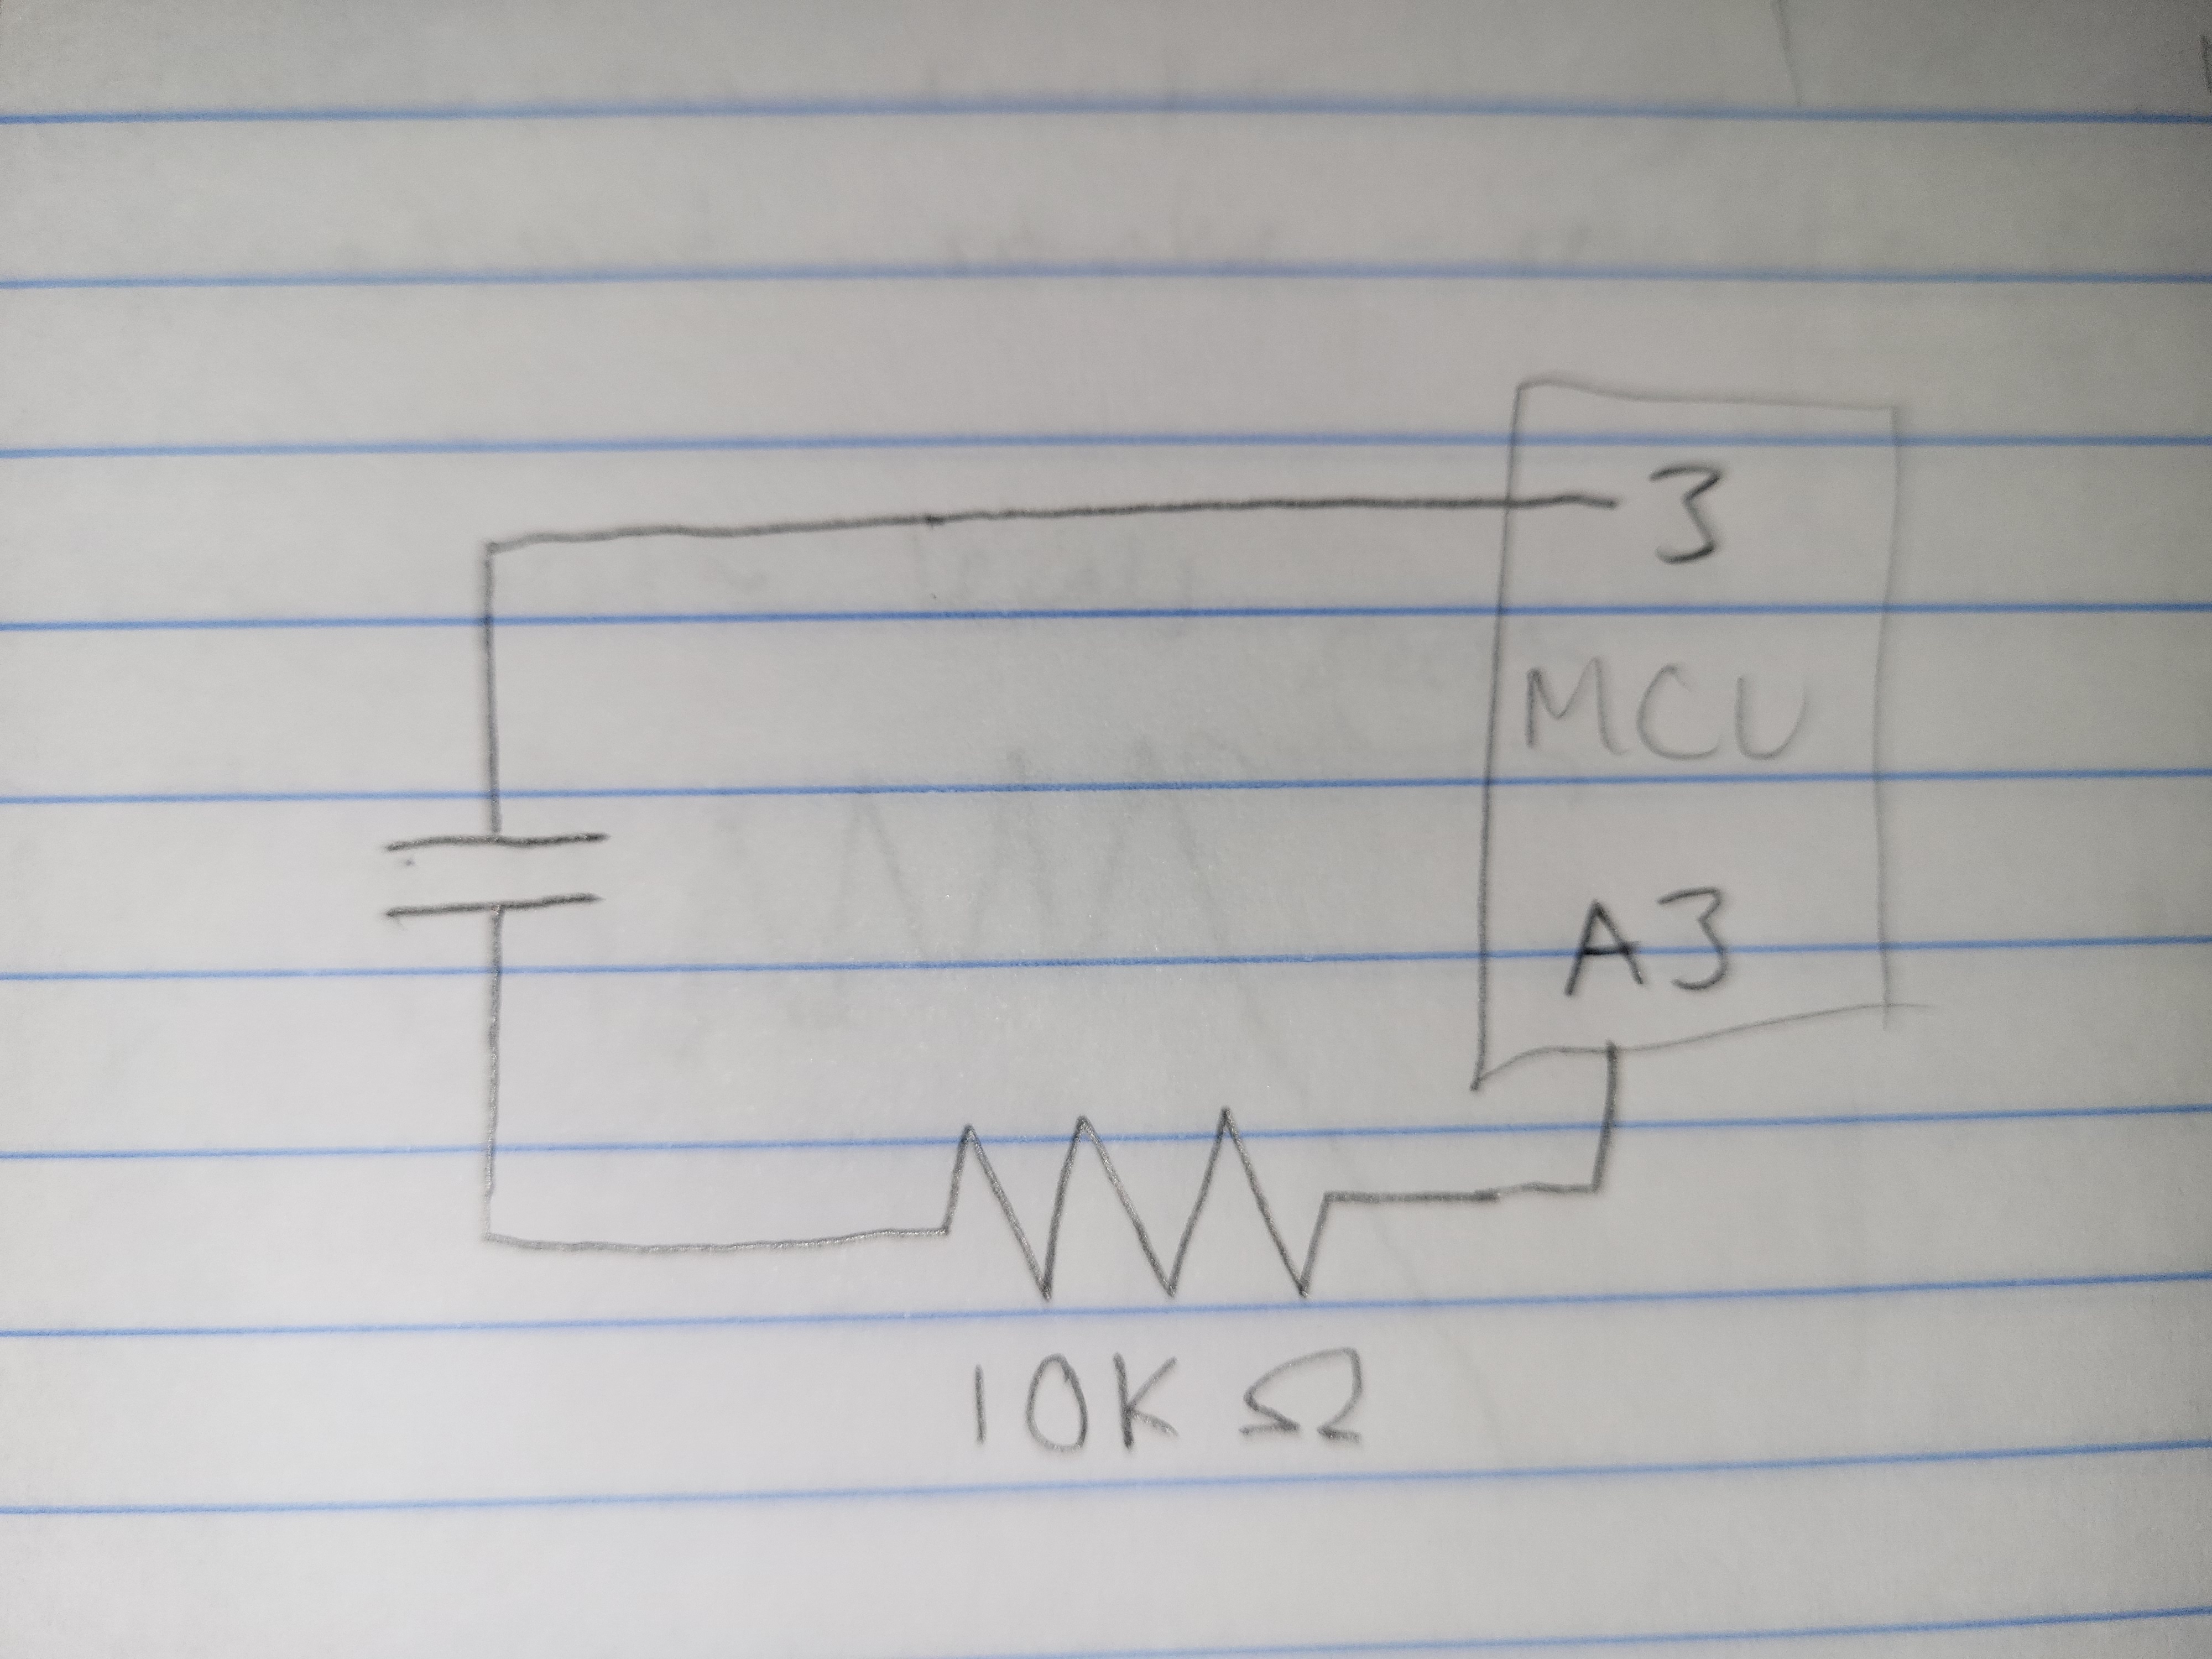 3
MCU
A3
10K Ω